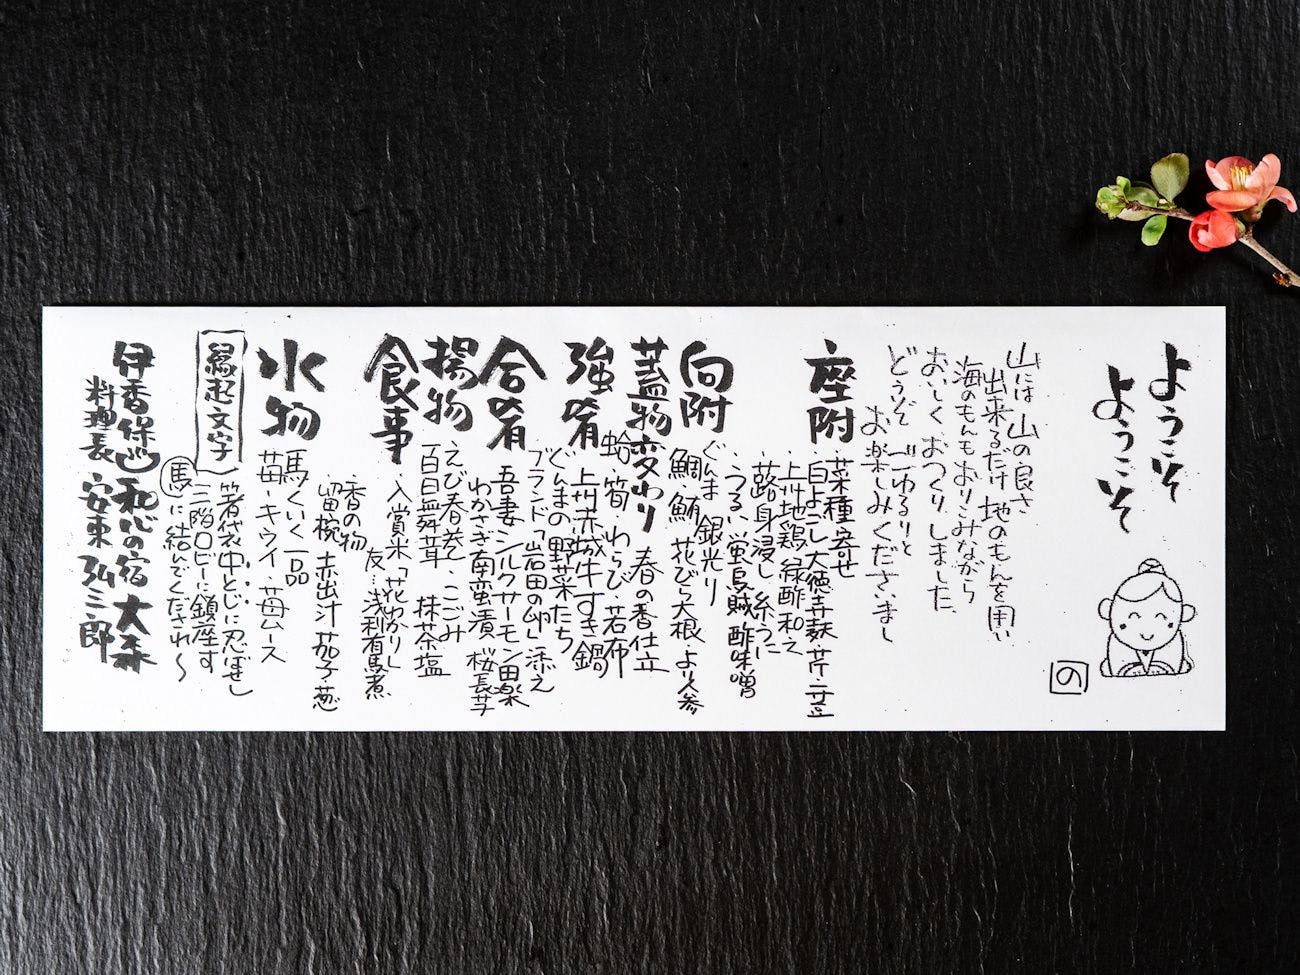 ようこそ
ようこそ
の
山には山の良さ
出来るだけ地のもんを用い
海のもんもおりこみながら
おいしくおつくりしました
どうぞごゆるりと
お楽しみくださいまし
座附
・菜種寄せ
・白よごし 大徳寺麸 芹
・上州地鶏 緑酢和え
・蕗身浸し 糸うに
・うるい 蛍烏賊 酢味噌
向附
ぐんま 銀光り
鯛 鮪 花びら大根・より人参
蓋物変わり 春の香仕立
蛤・筍・わらび・若布
強肴
上州赤城牛すき鍋
ぐんまの野菜たち
ブランド「岩田の卵」添え
合肴
吾妻シルクサーモン田楽
わかさぎ南蛮漬 桜長芋
揚物
えび春巻 こごみ
百目舞茸 抹茶塩
食事
入賞米「花ゆかり」
友…浅利有馬煮
香の物
留椀 赤出汁 茄子・葱
水物
馬くいく一品
苺・キウイ・苺ムース
縁起文字
箸袋中とじに忍ばせし
三階ロビーに鎮座す
馬に結んでくだされ〜
伊香保 和心の宿 大森
料理長 安東 弘三郎